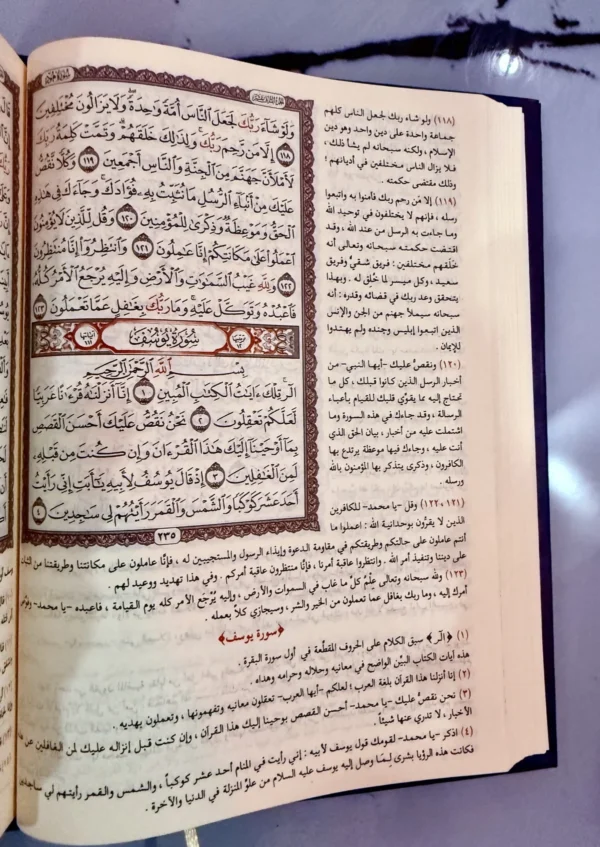 سُورَةُ هُودٍ
الجُزْءُ الثَّانِي عَشَرَ
وَلَوْ شَآءَ رَبُّكَ لَجَعَلَ ٱلنَّاسَ أُمَّةً وَٰحِدَةً ۖ وَلَا يَزَالُونَ مُخْتَلِفِينَ
١١٨ إِلَّا مَن رَّحِمَ رَبُّكَ ۚ وَلِذَٰلِكَ خَلَقَهُمْ ۗ وَتَمَّتْ كَلِمَةُ رَبِّكَ
لَأَمْلَأَنَّ جَهَنَّمَ مِنَ ٱلْجِنَّةِ وَٱلنَّاسِ أَجْمَعِينَ ١١٩ وَكُلًّا نَّقُصُّ
عَلَيْكَ مِنْ أَنۢبَآءِ ٱلرُّسُلِ مَا نُثَبِّتُ بِهِۦ فُؤَادَكَ ۚ وَجَآءَكَ فِى هَٰذِهِ
ٱلْحَقُّ وَمَوْعِظَةٌ وَذِكْرَىٰ لِلْمُؤْمِنِينَ ١٢٠ وَقُل لِّلَّذِينَ لَا يُؤْمِنُونَ
ٱعْمَلُوا۟ عَلَىٰ مَكَانَتِكُمْ إِنَّا عَٰمِلُونَ ١٢١ وَٱنتَظِرُوٓا۟ إِنَّا مُنتَظِرُونَ
١٢٢ وَلِلَّهِ غَيْبُ ٱلسَّمَٰوَٰتِ وَٱلْأَرْضِ وَإِلَيْهِ يُرْجَعُ ٱلْأَمْرُ كُلُّهُۥ
فَٱعْبُدْهُ وَتَوَكَّلْ عَلَيْهِ ۚ وَمَا رَبُّكَ بِغَٰفِلٍ عَمَّا تَعْمَلُونَ ١٢٣
ترتيبها ١٢ سُورَةُ يُوسُفَ آياتها ١١١
بِسْمِ ٱللَّهِ ٱلرَّحْمَٰنِ ٱلرَّحِيمِ
الٓر ۚ تِلْكَ ءَايَٰتُ ٱلْكِتَٰبِ ٱلْمُبِينِ ١ إِنَّآ أَنزَلْنَٰهُ قُرْءَٰنًا عَرَبِيًّا
لَّعَلَّكُمْ تَعْقِلُونَ ٢ نَحْنُ نَقُصُّ عَلَيْكَ أَحْسَنَ ٱلْقَصَصِ
بِمَآ أَوْحَيْنَآ إِلَيْكَ هَٰذَا ٱلْقُرْءَانَ وَإِن كُنتَ مِن قَبْلِهِۦ
لَمِنَ ٱلْغَٰفِلِينَ ٣ إِذْ قَالَ يُوسُفُ لِأَبِيهِ يَٰٓأَبَتِ إِنِّى رَأَيْتُ
أَحَدَ عَشَرَ كَوْكَبًا وَٱلشَّمْسَ وَٱلْقَمَرَ رَأَيْتُهُمْ لِى سَٰجِدِينَ ٤
٢٣٥
(١١٨) ولو شاء ربك لجعل الناس كلهم
جماعة واحدة على دين واحد وهو دين
الإسلام ، ولكنه سبحانه لم يشأ ذلك ،
فلا يزال الناس مختلفين في أديانهم ؛
وذلك مقتضى حكمته .
(١١٩) إلا مَن رحم ربك فآمنوا به واتبعوا
رسله ، فإنهم لا يختلفون في توحيد الله
وما جاءت به الرسل من عند الله ، وقد
اقتضت حكمته سبحانه وتعالى أنه
خَلَقهم مختلفين : فريق شقيّ وفريق
سعيد ، وكل ميسر لما خُلق له . وبهذا
يتحقق وعد ربك في قضائه وقدره : أنه
سبحانه سيملأ جهنم من الجن والإنس
الذين اتبعوا إبليس وجنده ولم يهتدوا
للإيمان .
(١٢٠) ونقصُّ عليك -أيها النبي- من
أخبار الرسل الذين كانوا قبلك ، كل ما
تحتاج إليه مما يقوّي قلبك للقيام بأعباء
الرسالة ، وقد جاءك في هذه السورة وما
اشتملت عليه من أخبار ، بيان الحق الذي
أنت عليه ، وجاءك فيها موعظة يرتدع بها
الكافرون ، وذكرى يتذكر بها المؤمنون بالله
ورسله .
(١٢١، ١٢٢) وقل -يا محمد- للكافرين
الذين لا يقرّون بوحدانية الله : اعملوا ما
أنتم عاملون على حالتكم وطريقتكم في مقاومة الدعوة وإيذاء الرسول والمستجيبين له ، فإنّا عاملون على مكانتنا وطريقتنا من الثبات
على ديننا وتنفيذ أمر الله . وانتظروا عاقبة أمرنا ، فإنّا منتظرون عاقبة أمركم . وفي هذا تهديد ووعيد لهم .
(١٢٣) ولله سبحانه وتعالى عِلْمُ كلِّ ما غاب في السموات والأرض ، وإليه يُرْجَع الأمر كله يوم القيامة ، فاعبده -يا محمد-
أمرك إليه ، وما ربك بغافل عما تعملون من الخير والشر ، وسيجازي كلاً بعمله .
﴿سورة يوسف﴾
(١) ﴿الٓر﴾ سبق الكلام على الحروف المقطّعة في أول سورة البقرة .
هذه آيات الكتاب البيّن الواضح في معانيه وحلاله وحرامه وهداه .
(٢) إنا أنزلنا هذا القرآن بلغة العرب ؛ لعلكم -أيها العرب- تعقلون معانيه وتفهمونها ، وتعملون بهديه .
(٣) نحن نقصُّ عليك -يا محمد- أحسن القصص بوحينا إليك هذا القرآن ، وإن كنت قبل إنزاله عليك لمن الغافلين عن هذه
الأخبار ، لا تدري عنها شيئاً .
(٤) اذكر -يا محمد- لقومك قول يوسف لأبيه : إني رأيت في المنام أحد عشر كوكباً ، والشمس والقمر رأيتهم لي ساجدين
فكانت هذه الرؤيا بشرى لِمَا وصل إليه يوسف عليه السلام من علوِّ المنزلة في الدنيا والآخرة .